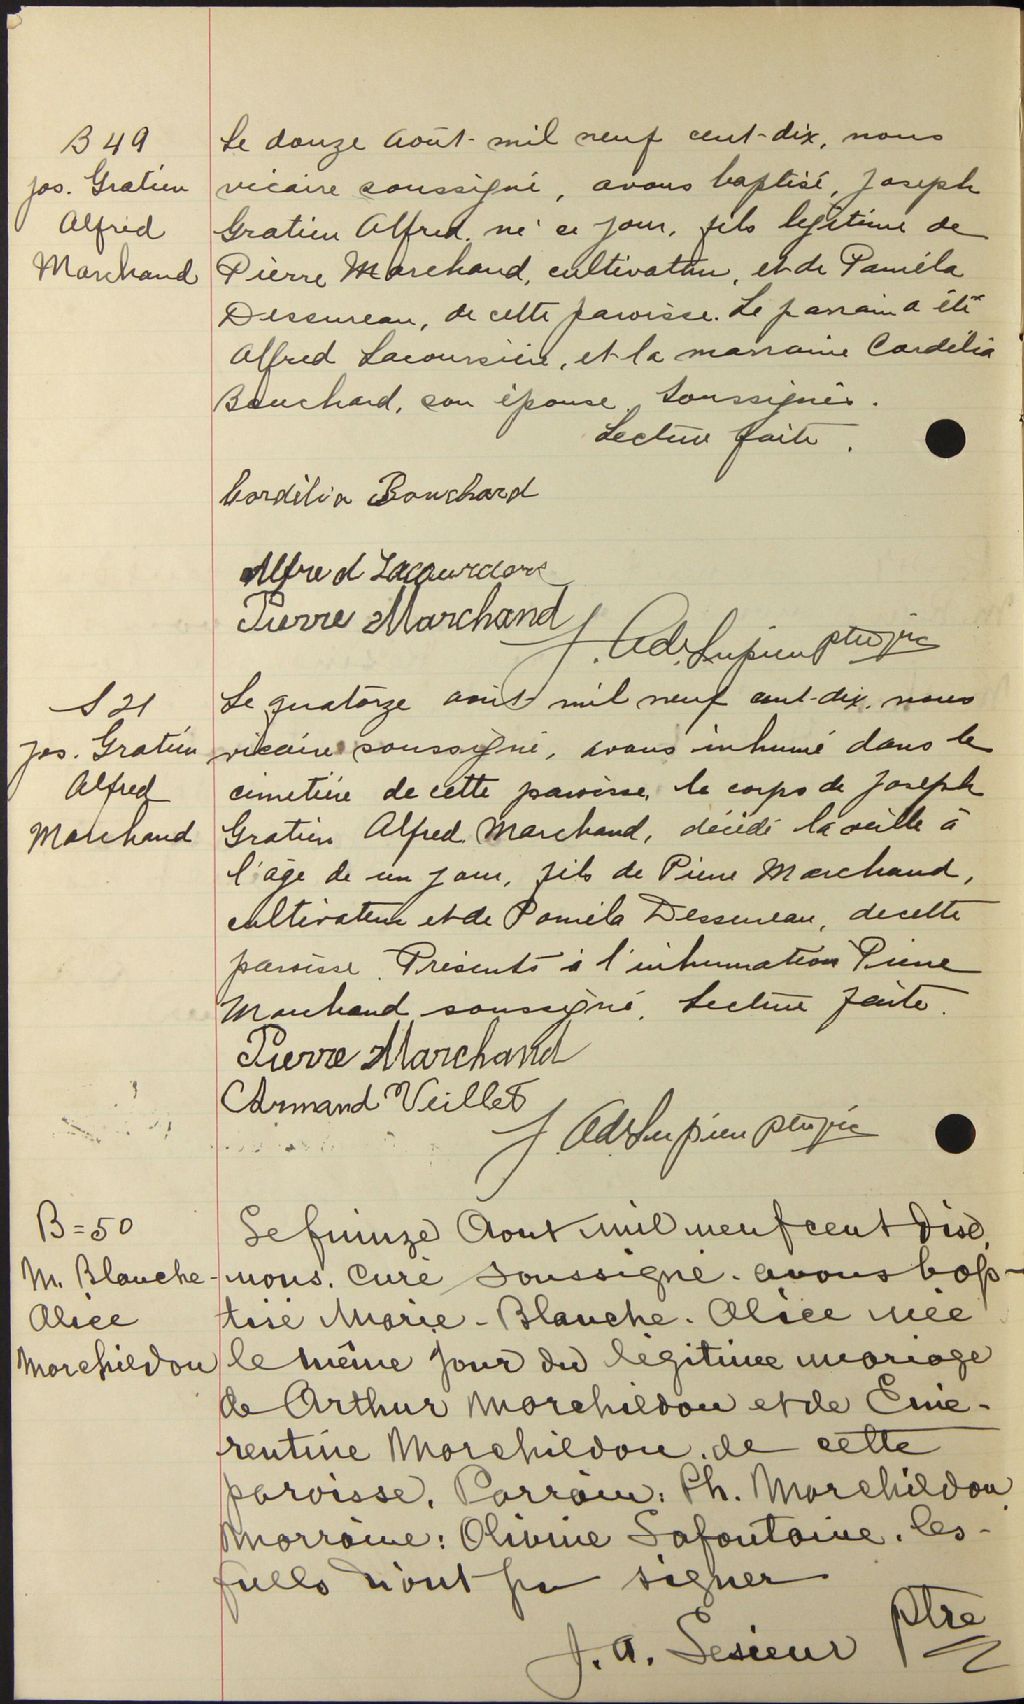 B 49
Jos. Gratien
Alfred
Marchand
Le douze août mil neuf cent-dix, nous
vicaire soussigné, avons baptisé, Joseph
Gratien Alfred, né ce jour, fils légitime de
Pierre Marchand, cultivateur, et de Paméla
Dessureau, de cette paroisse. Le parrain a été
Alfred Lacoursière, et la marraine Cordélia
Bouchard, son épouse soussignés.
Lecture faite.
Cordélia Bouchard
Alfred Lacourciere
Pierre Marchand
J. Ad. Lupien ptre vic
S 21
Jos. Gratien
Alfred
Marchand
Le quatorze août mil neuf cent-dix, nous
vicaire soussigné, avons inhumé dans le
cimetière de cette paroisse, le corps de Joseph
Gratien Alfred Marchand, décédé la veille à
l'âge de un jour, fils de Pierre Marchand,
cultivateur et de Paméla Dessureau, de cette
paroisse. Présents à l'inhumation Pierre
Marchand soussigné. Lecture faite.
Pierre Marchand
Armand Veillet
J Ad Lupien ptre vic
B = 50
M. Blanche-
Alice
Marchildon
Le quinze Aout mil neuf cent dise,
nous. Curé soussigné. avons bap-
tisé Marie-Blanche. Alice née
le même jour du légitime mariage
de Arthur Marchildon et de Emé-
rentine Marchildon. de cette
paroisse. Parrain: Ph. Marchildon
Marraine: Olivine Lafontaine. les-
quels n'ont pu signer
J. A. Lesieur ptre